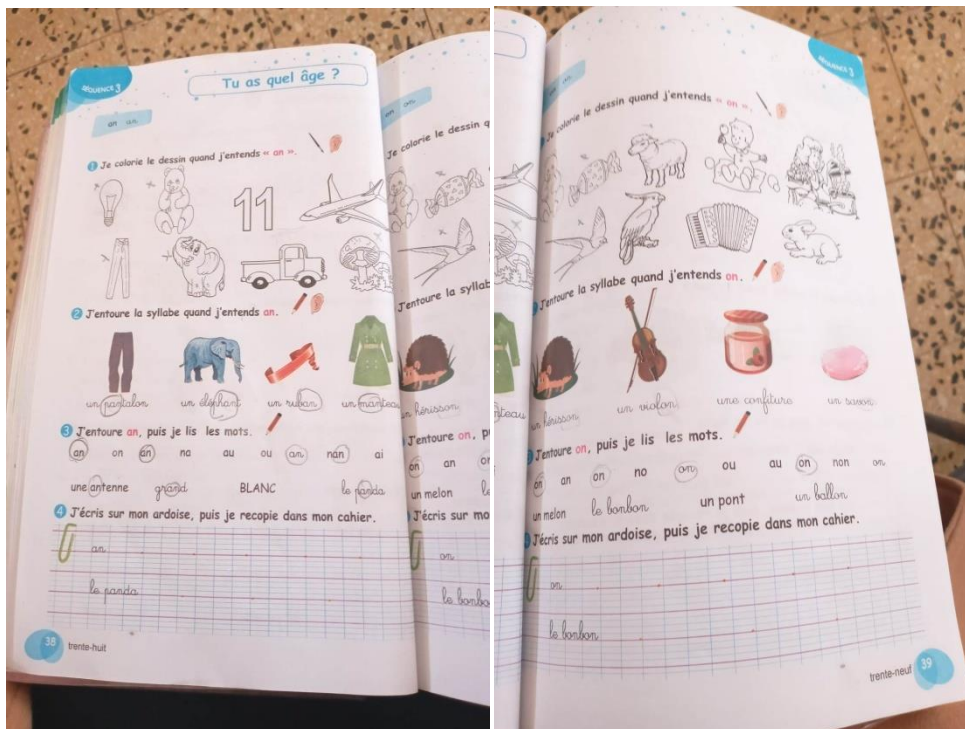 SÉQUENCE 3
Tu as quel âge ?
an an
1 Je colorie le dessin quand j'entends « an ».
11
2 J'entoure la syllabe quand j'entends an.
un pantalon un éléphant un ruban un manteau
3 J'entoure an, puis je lis les mots.
an on an na au ou an nan ai
une antenne grand BLANC le panda
4 J'écris sur mon ardoise, puis je recopie dans mon cahier.
an
le panda
38 trente-huit
on on
Je colorie le dessin q
J'entoure la syllab
un hérisson
J'entoure on, p
on an on
un melon le
J'écris sur mo
on
le bonbo
SÉQUENCE 3
on
Je colorie le dessin quand j'entends « on ».
J'entoure la syllabe quand j'entends on.
nteau un hérisson un violon une confiture un savon
J'entoure on, puis je lis les mots.
on an on no on ou au on non on
un melon le bonbon un pont un ballon
J'écris sur mon ardoise, puis je recopie dans mon cahier.
on
le bonbon
trente-neuf 39